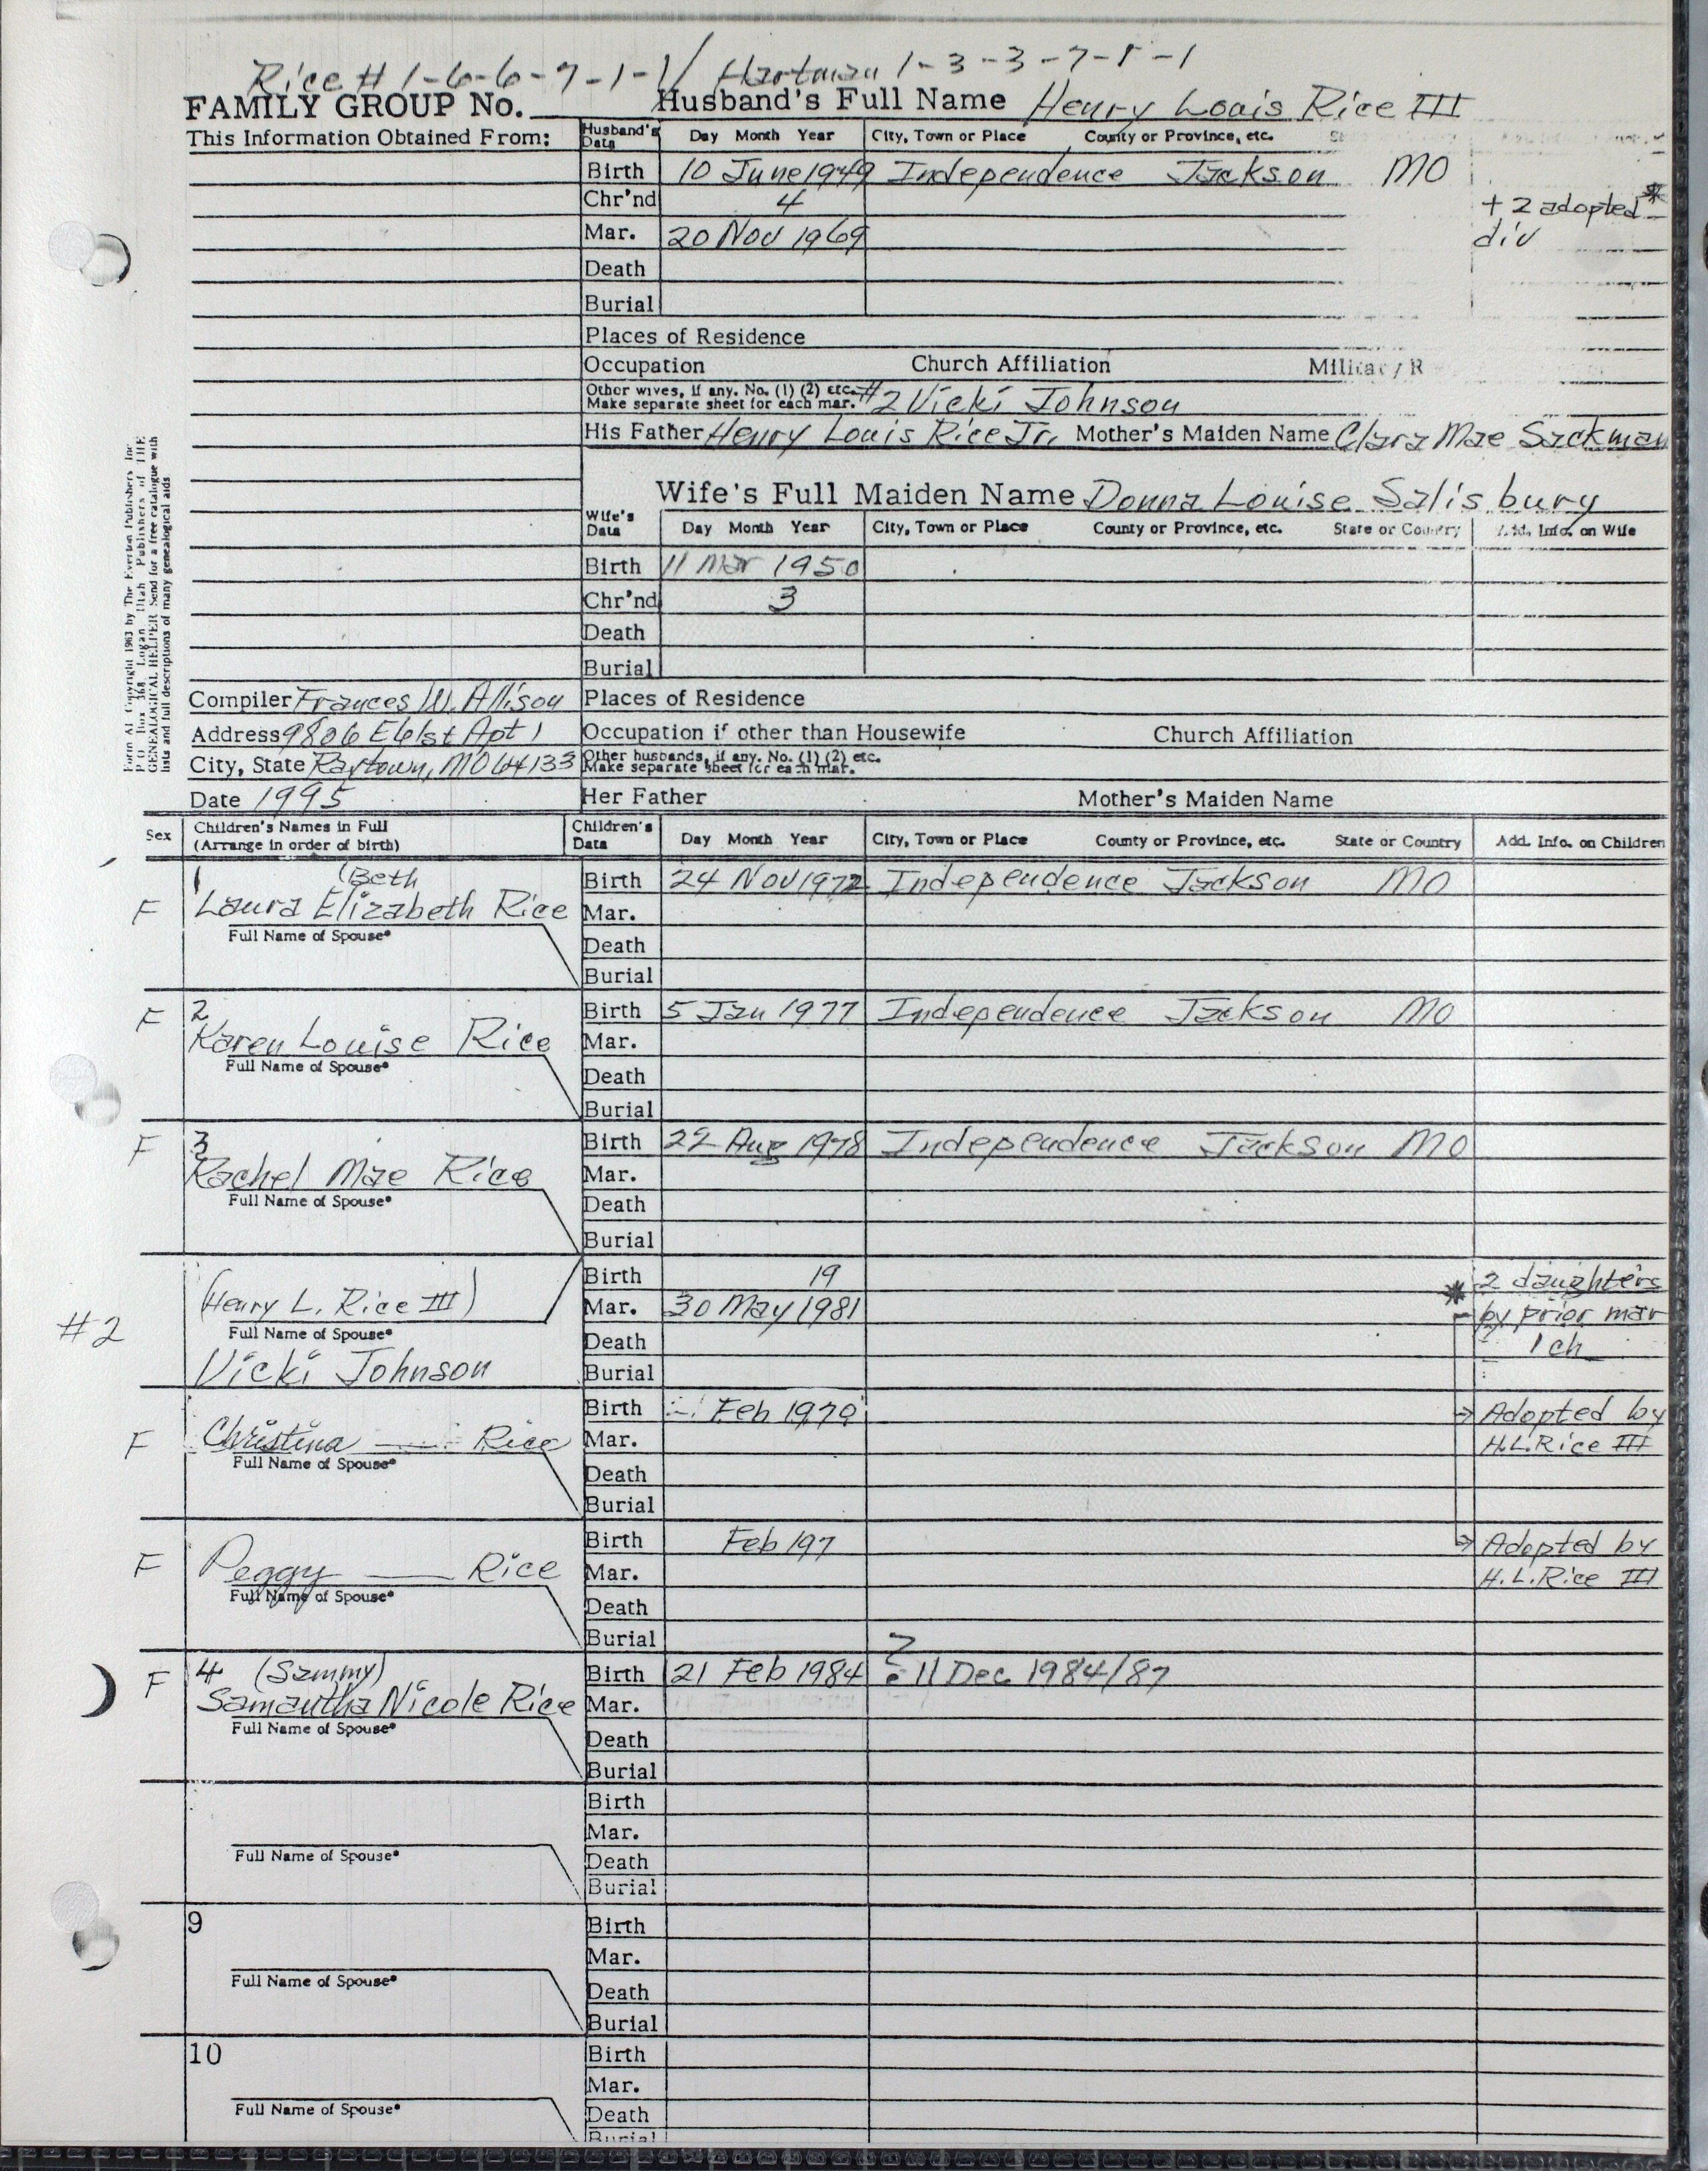 Rice # 1-6-6-7-1-1 / Hartman 1-3-3-7-8-1
FAMILY GROUP No. Husband's Full Name Henry Louis Rice III
This Information Obtained From: Husband's Data Day Month Year City, Town or Place County or Province, etc.
Birth 10 June 1949 Independence Jackson MO
Chr'nd 4 + 2 adopted *
Mar. 20 Nov 1969 div
Death
Burial
Places of Residence
Occupation Church Affiliation Military R
Other wives, if any. No. (1) (2) etc. Make separate sheet for each mar. #2 Vicki Johnson
His Father Henry Louis Rice Jr. Mother's Maiden Name Clara Mae Sackman
Wife's Full Maiden Name Donna Louise Salisbury
Wife's Data Day Month Year City, Town or Place County or Province, etc. State or Country Add. Info. on Wife
Birth 11 Mar 1950
Chr'nd 3
Death
Burial
Form A1 Copyright 1963 by The Everton Publishers Inc
P.O. Box 368 Logan Utah Publishers of THE
GENEALOGICAL HELPER Send for a free catalogue with
lists and full descriptions of many genealogical aids
Compiler Frances W. Allison Places of Residence
Address 9806 E 61st Apt 1 Occupation if other than Housewife Church Affiliation
City, State Raytown, MO 64133 Other husbands, if any. No. (1) (2) etc. Make separate sheet for each mar.
Date 1995 Her Father Mother's Maiden Name
Sex Children's Names in Full (Arrange in order of birth) Children's Data Day Month Year City, Town or Place County or Province, etc. State or Country Add. Info. on Children
1 (Beth Birth 24 Nov 1972 Independence Jackson MO
F Laura Elizabeth Rice Mar.
Full Name of Spouse* Death
Burial
F 2 Birth 5 Jan 1977 Independence Jackson MO
Karen Louise Rice Mar.
Full Name of Spouse* Death
Burial
F 3 Birth 22 Aug 1978 Independence Jackson MO
Rachel Mae Rice Mar.
Full Name of Spouse* Death
Burial
Birth 19 * 2 daughters
#2 (Henry L. Rice III) Mar. 30 May 1981 by prior mar
Full Name of Spouse* Death 1 ch
Vicki Johnson Burial
Birth Feb 1970 Adopted by
F Christina Rice Mar. H.L. Rice III
Full Name of Spouse* Death
Burial
Birth Feb 197 Adopted by
F Peggy Rice Mar. H.L. Rice III
Full Name of Spouse* Death
Burial
F 4 (Sammy) Birth 21 Feb 1984 ? 11 Dec 1984/87
Samantha Nicole Rice Mar.
Full Name of Spouse* Death
Burial
Birth
Mar.
Full Name of Spouse* Death
Burial
9 Birth
Mar.
Full Name of Spouse* Death
Burial
10 Birth
Mar.
Full Name of Spouse* Death
Burial